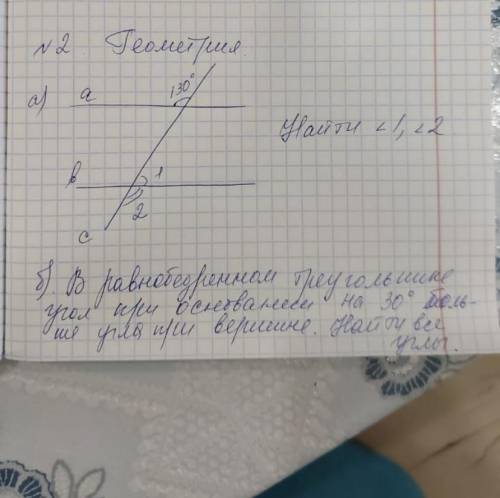 №2. Геометрия.
130°
а) a
Найти <1, <2
b 1
2
c
б) В равнобедренном треугольнике
угол при основании на 30° боль-
ше угла при вершине. Найти все
углы.